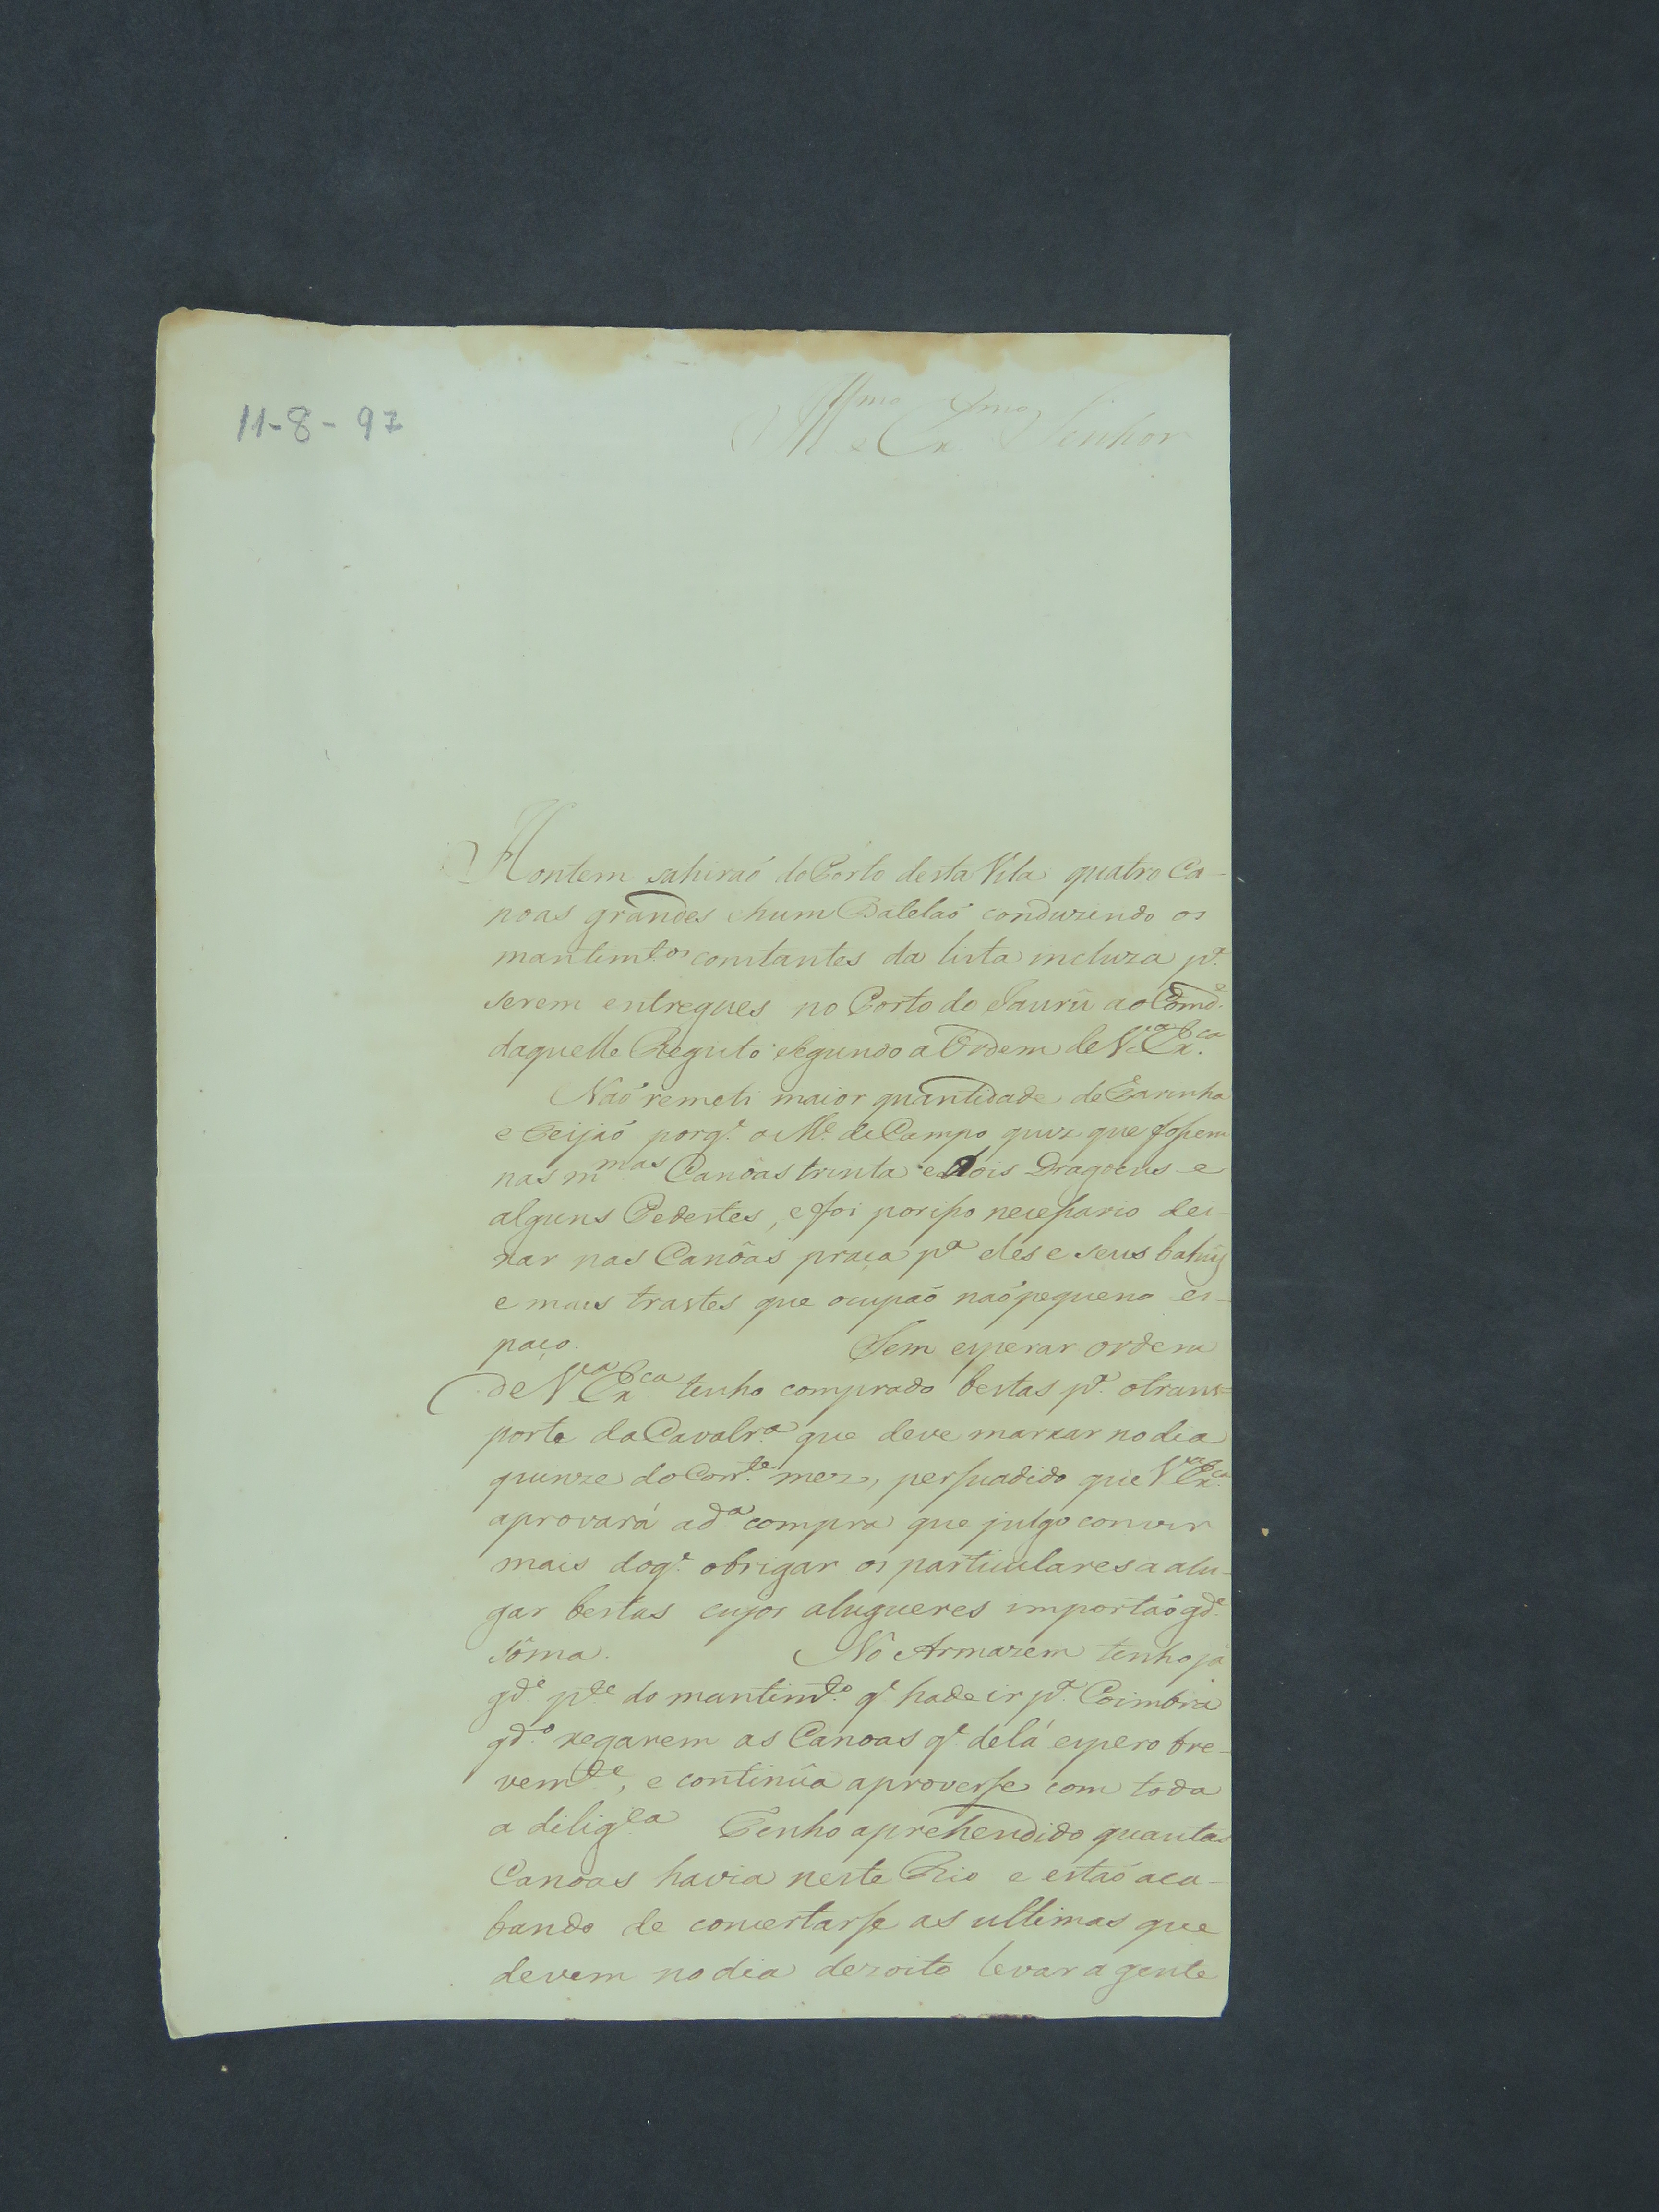 11-8-97
Ill.mo e Ex.mo Senhor
Hontem sahiraó do Porto desta Vila quatro Ca-
noas grandes e hum Batelaó conduzindo os
mantim.tos constantes da lista incluza p.a
serem entregues no Porto do Jaurú ao Comd.e
daquelle Registo segundo a Ordem de V.a Ex.ca
Naó remeti maior quantidade de Farinha
e Feijaó porq.e o M.e de Campo quiz que fossem
nas m.mas Canôas trinta e dois Dragoens e
alguns Pedestes, e foi porisso necessario dei-
xar nas Canôas praça p.a eles e seus bahûs
e mais trastes que ocupaó naó pequeno es-
paço. Sem esperar ordem
de V.a Ex.ca tenho comprado bestas p.a o trans=
porte da Cavalr.a que deve marxar no dia
quinze do Corr.te mez, persuadido que V.a Ex.ca
aprovará a d.a compra que julgo convir
mais doq.e obrigar os particulares a alu-
gar bestas cujos alugueres importaó gd.e
sôma. Nô Armazem tenho já
gd.e p.te do mantim.to q.e hade ir p.a Coimbra
qd.o xegarem as Canoas q.e de lá espero bre-
vem.te, e continûa aproverse com toda
a dilig.ca Tenho aprehendido quantas
Canoas havia neste Rio e estaó aca-
bando de concertarse as ultimas que
devem no dia dezoito levar a gente